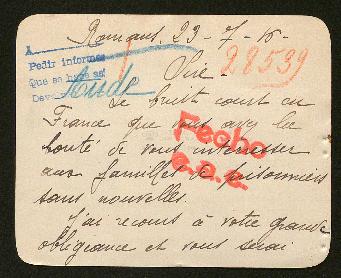 Romans. 23-7-15-
A
Pedir informes
Que se hizo así
28539
Sire -
Le bruit court en
France que vous avez la
Fecho
bonté de vous intéresser
aux familles de prisonniers
sans nouvelles.
J'ai recours à votre grande
obligeance et vous serai